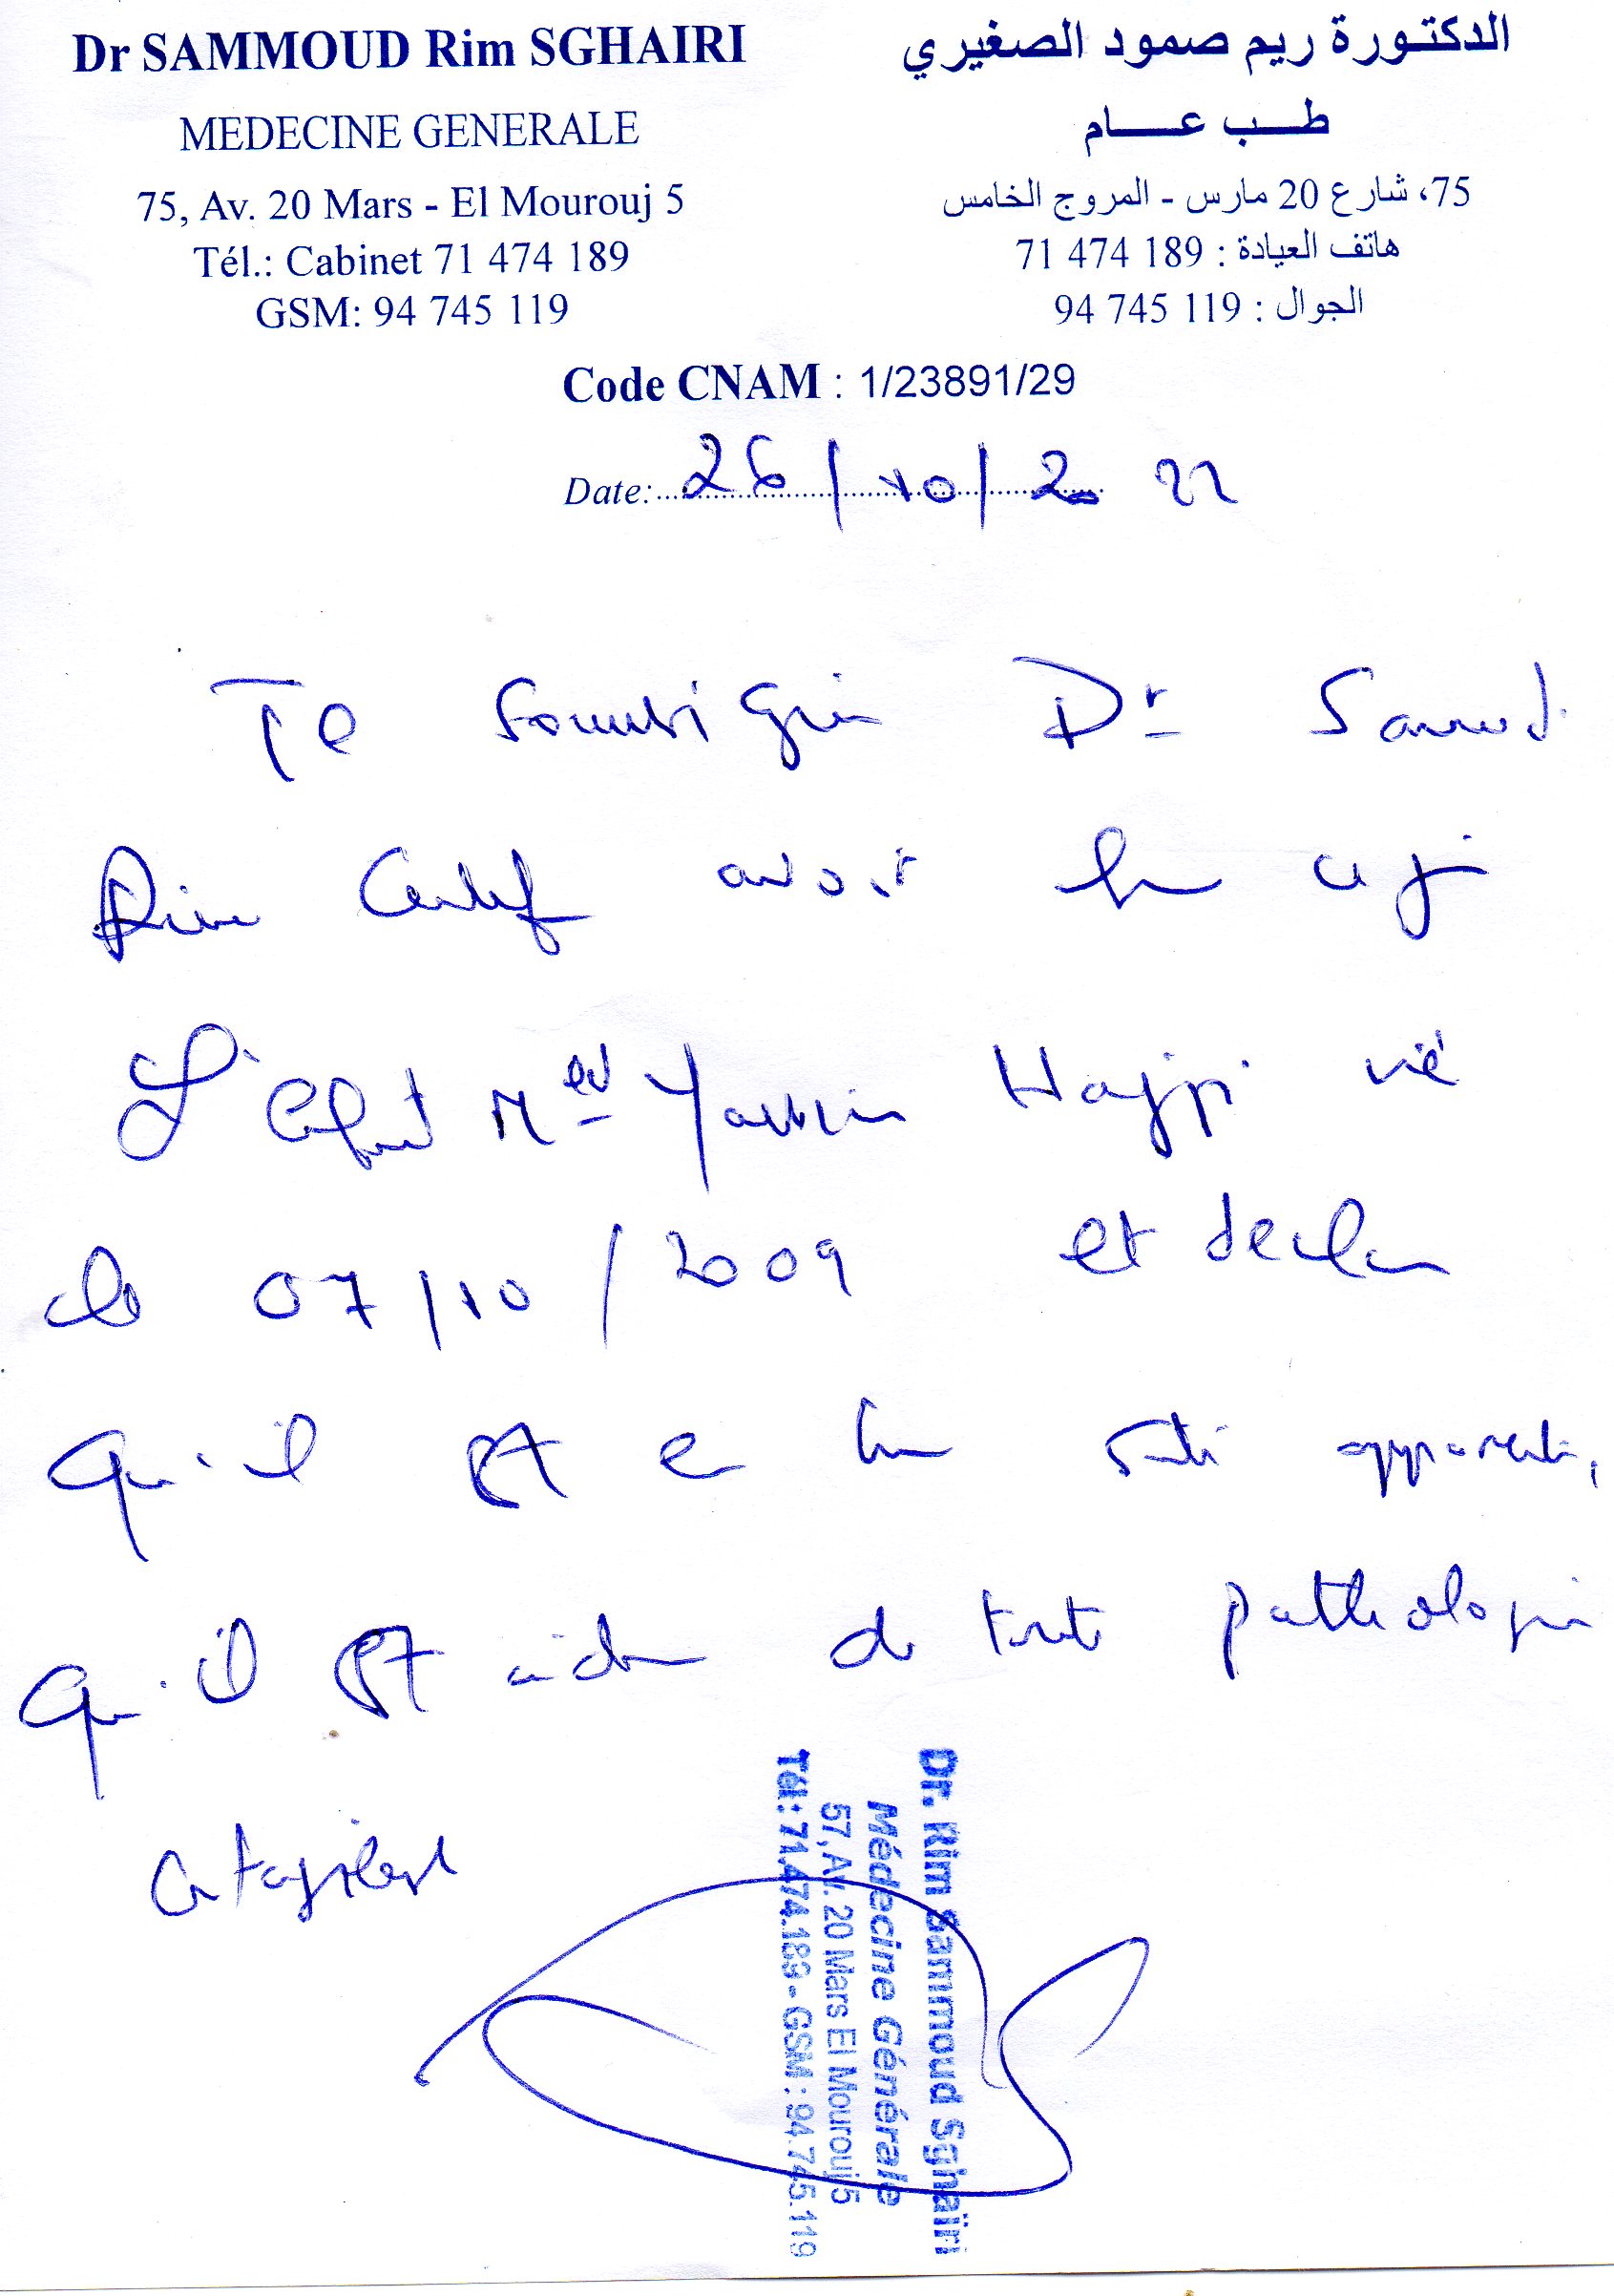 Dr SAMMOUD Rim SGHAIRI
MEDECINE GENERALE
75, Av. 20 Mars - El Mourouj 5
Tél.: Cabinet 71 474 189
GSM: 94 745 119
الدكتورة ريم صمود الصغيري
طب عام
75، شارع 20 مارس - المروج الخامس
هاتف العيادة : 189 474 71
الجوال : 119 745 94
Code CNAM : 1/23891/29
Date: 26/10/2022
Je soussigné Dr Sammoud
Rim certifie avoir ce jour
L'enfant Med Yassin Hajji né
le 07/10/2009 et déclare
Qu'il est en bon santé apparente,
Qu'il est indemne de toute pathologie
contagieuse
Dr. Rim Sammoud Sghaïri
Médecine Générale
57, Av. 20 Mars El Mourouj 5
Tél: 71.474.189 - GSM : 94.745.119